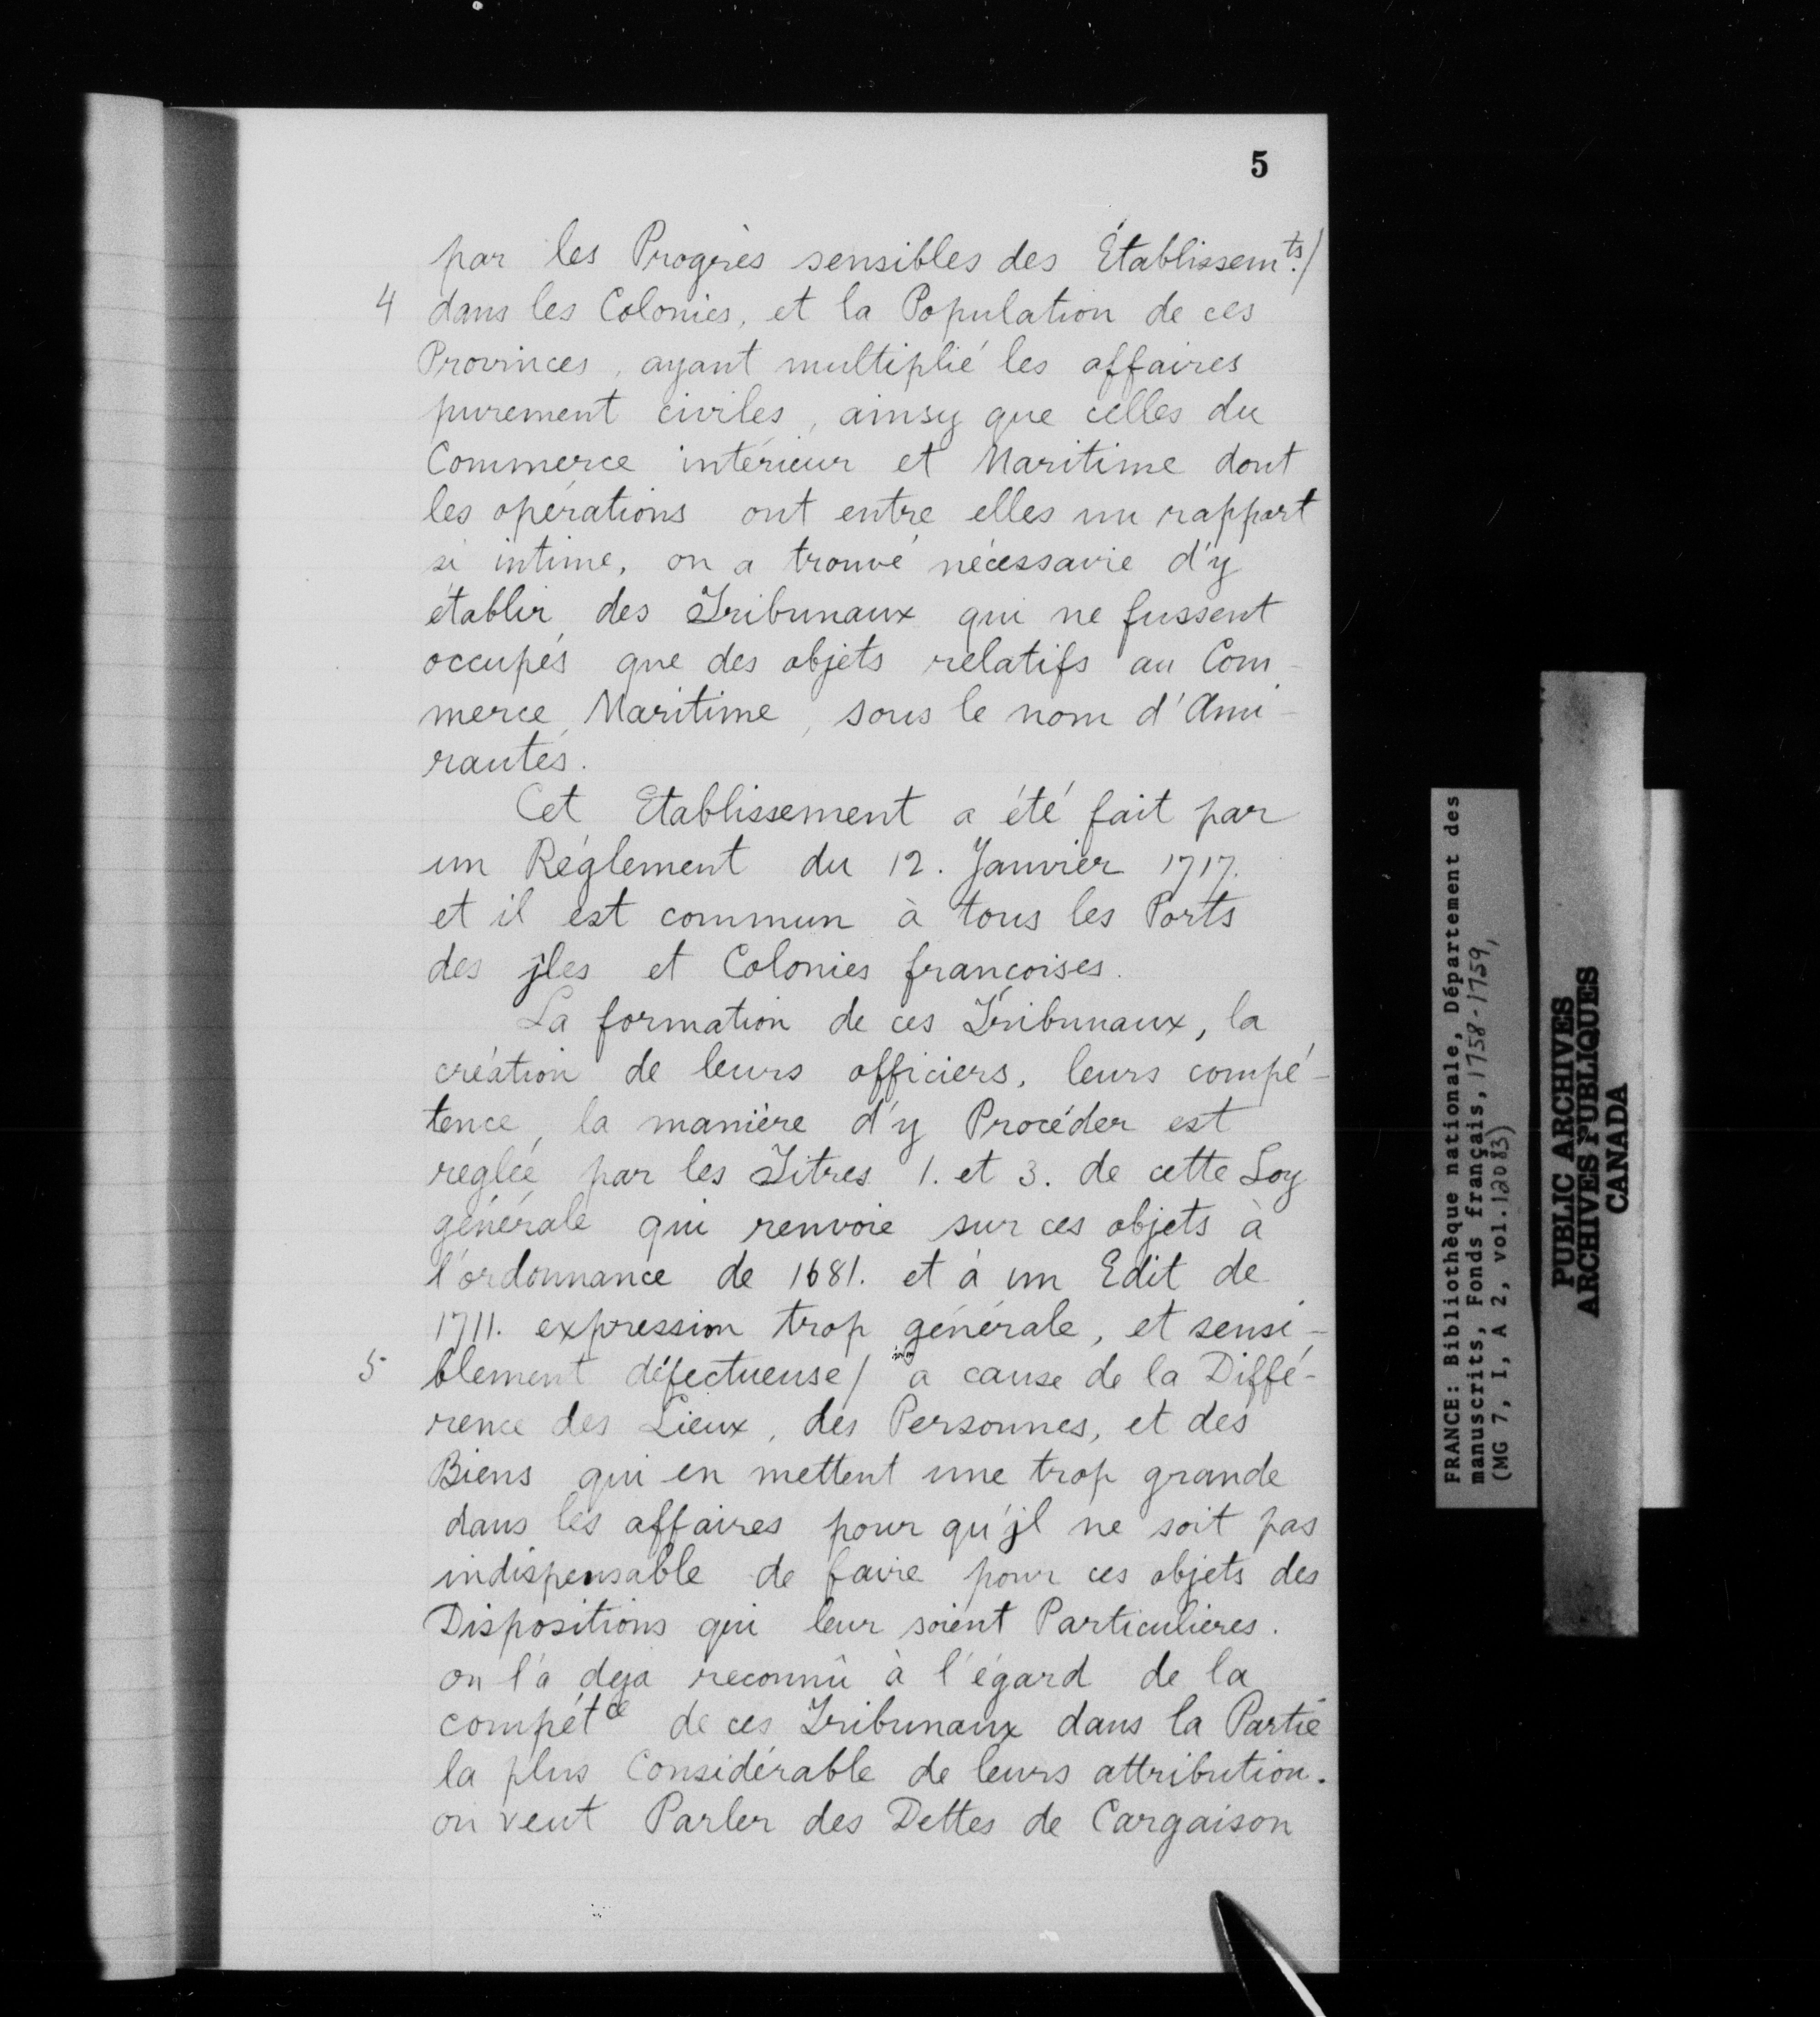 5
par les Progrès sensibles des Établissemts./
4 dans les Colonies, et la Population de ces
Provinces, ayant multiplié les affaires
purement civiles, ainsy que celles du
Commerce intérieur et Maritime dont
les opérations ont entre elles un rapport
si intime, on a trouvé nécessaire d'y
établir des Tribunaux qui ne fussent
occupés que des objets relatifs au Com-
merce Maritime, sous le nom d'Ami-
rautés.
Cet Etablissement a été fait par
un Réglement du 12. Janvier 1717.
et il est commun à tous les Ports
des jles et Colonies françoises.
La formation de ces Tribunaux, la
création de leurs officiers, leurs compé-
tence, la manière d'y Procéder est
reglée par les Titres 1. et 3. de cette Loy
générale qui renvoie sur ces objets à
l'ordonnance de 1681. et à un Edit de
1711. expression trop générale, et sensi-
5 blement défectueuse/ a cause de la Diffé-
rence des Lieux, des Personnes, et des
Biens qui en mettent une trop grande
dans les affaires pour qu'jl ne soit pas
indispensable de faire pour ces objets des
Dispositions qui leur soient Particulieres.
on l'a deja reconnû à l'égard de la
compétce de ces Tribunaux dans la Partie
la plus Considérable de leurs attribution.
on veut Parler des Dettes de Cargaison
FRANCE: Bibliothèque nationale, Département des
manuscrits, Fonds français, 1758-1759,
(MG 7, I, A 2, vol.12083)
PUBLIC ARCHIVES
ARCHIVES PUBLIQUES
CANADA